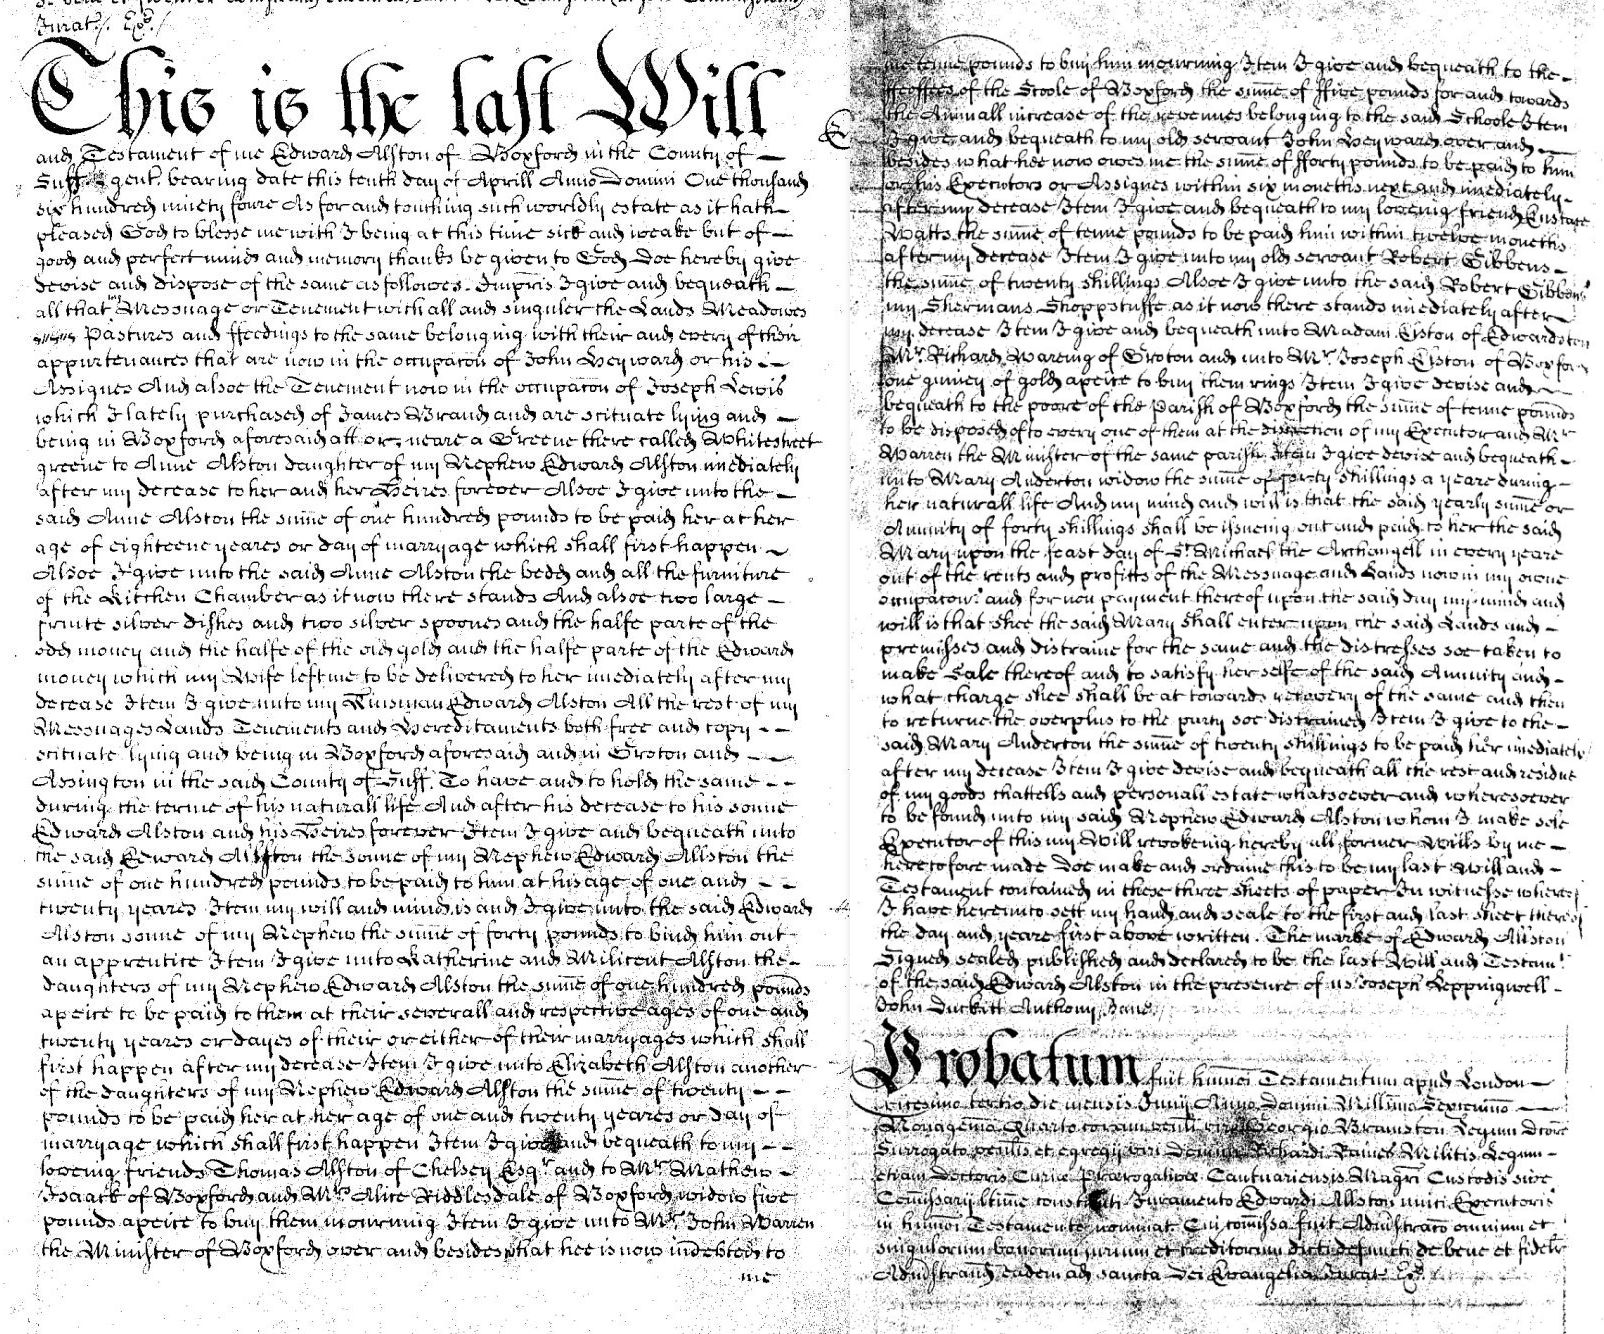 Jurat. Ex.
This is the last Will
and Testament of me Edward Alston of Boxford in the County of
Suff. gent. bearing date this tenth day of Aprill Anno Domini One thousand
six hundred ninety foure As for and touching such worldly estate as it hath
pleased God to blesse me with I being at this time sick and weake but of
good and perfect minde and memory thanks be given to God doe hereby give
devise and dispose of the same as followes. Impris I give and bequeath
all that my Messuage or Tenement with all and singuler the Lands Meadowes
Pastures and ffeedings to the same belonging with their and every of their
appurtenances that are now in the occupacon of John Heyward or his
Assignes And alsoe the Tenement now in the occupacon of Joseph Lewis
which I lately purchased of James Brand and are scituate lying and
being in Boxford aforesaid att or neare a Greene there called Whitestreet
greene to Anne Alston daughter of my Nephew Edward Alston imediately
after my decease to her and her Heires forever Alsoe I give unto the
said Anne Alston the sume of one hundred pounds to be paid her at her
age of eighteene yeares or day of marryage which shall first happen
Alsoe I give unto the said Anne Alston the bedd and all the furniture
of the Kitchen Chamber as it now there stands And alsoe two large
fruite silver dishes and two silver spoones and the halfe parte of the
odd money and the halfe of the old gold and the halfe parte of the Edward
money which my Wife left me to be delivered to her imediately after my
decease Item I give unto my Kinsman Edward Alston All the rest of my
Messuages Lands Tenements and Hereditaments both free and copy
scituate lying and being in Boxford aforesaid and in Groton and
Assington in the said County of Suff. To have and to hold the same
during the terme of his naturall life And after his decease to his sonne
Edward Alston and his Heires forever Item I give and bequeath unto
the said Edward Allston the sonne of my Nephew Edward Allston the
sume of one hundred pounds to be paid to him at his age of one and
twenty yeares Item my will and mind is and I give unto the said Edward
Alston sonne of my Nephew the sume of forty pounds to bind him out
an apprentice Item I give unto Katherine and Milicent Alston the
daughters of my Nephew Edward Alston the sume of one hundred pounds
apeice to be paid to them at their severall and respective ages of one and
twenty yeares or dayes of their or either of their marryages which shall
first happen after my decease Item I give unto Elizabeth Alston another
of the daughters of my Nephew Edward Alston the sume of twenty
pounds to be paid her at her age of one and twenty yeares or day of
marryage which shall first happen Item I give and bequeath to my
loveing friends Thomas Alston of Chelsey Esqr. and to Mr. Mathew
Isaack of Boxford and Mrs. Alice Riddlesdale of Boxford widow five
pounds apeice to buy them mourning Item I give unto Mr. John Warren
the Minister of Boxford over and besides that hee is now indebted to
me
me tenne pounds to buy him mourning Item I give and bequeath to the
ffeoffees of the Scoole of Boxford the sume of ffive pounds for and towards
the Annuall increase of the revenues belonging to the said Schoole Item
I give and bequeath to my old servant John Heyward over and
besides what hee now owes me the sume of fforty pounds to be paid to him
or his Executors or Assignes within six moneths next and imediately
after my decease Item I give and bequeath to my loveing friend Eustace
Watts the sume of tenne pounds to be paid him within twelve moneths
after my decease Item I give unto my old servant Robert Gibbens
the sume of twenty shillings Alsoe I give unto the said Robert Gibbens
my Shermans Shoppstuffe as it now there stands imediately after
my decease Item I give and bequeath unto Madam Elston of Edwardston
Mr. Richard Wareing of Groton and unto Mr. Joseph Elston of Boxford
one guiney of gold apeice to buy them rings Item I give devise and
bequeath to the poore of the Parish of Boxford the sume of tenne pounds
to be disposed of to every one of them at the discretion of my Executor and Mr
Warren the Minister of the same parish Item I give devise and bequeath
unto Mary Anderton widow the sume of forty shillings a yeare during
her naturall life And my mind and will is that the said yearly sume or
Annuity of forty shillings shall be issueing out and paid to her the said
Mary upon the feast day of St. Michael the Archangell in every yeare
out of the rents and profitts of the Messuage and Lands now in my owne
occupacon and for non payment thereof upon the said day my mind and
will is that shee the said Mary shall enter upon the said Lands and
premisses and distraine for the same and the distresses soe taken to
make Sale thereof and to satisfy her selfe of the said Annuity and
what charge shee shall be at towards recovery of the same and then
to returne the overplus to the party soe distrained Item I give to the
said Mary Anderton the sume of twenty shillings to be paid her imediately
after my decease Item I give devise and bequeath all the rest and residue
of my goods chattells and personall estate whatsoever and wheresoever
to be found unto my said Nephew Edward Alston whom I make sole
Executor of this my Will revokeing hereby all former Wills by me
heretofore made Doe make and ordaine this to be my last Will and
Testament contained in these three sheets of paper In witnesse whereof
I have hereunto sett my hand and seale to the first and last sheet thereof
the day and yeare first above written. The marke of Edward Allston
Signed sealed published and declared to be the last Will and Testamt.
of the said Edward Alston in the presence of us Joseph Leppingwell
John Duckett Anthony Jane
Probatum fuit humoi Testamentum apud London
vicesimo tertio die mensis Junij Anno Domini Millimo Sexcenmo
Nonagesimo Quarto coram venli viro Georgio Bramston Legum Dcore
Surrogato venlis et egregij viri Domini Richardi Raines Militis Legum
etiam Doctoris Curiae Prerogativae Cantuariensis Magri Custodis sive
Comissarij ltime constituti Juramento Edwardi Allston unici Executoris
in humoi Testamento nominat. Cui comissa fuit Admistraco omnium et
singulorum bonorum jurium et creditorum dicti defuncti de bene et fidelr
Admistrand eadem ad sancta Dei Evangelia Jurat. Ex.